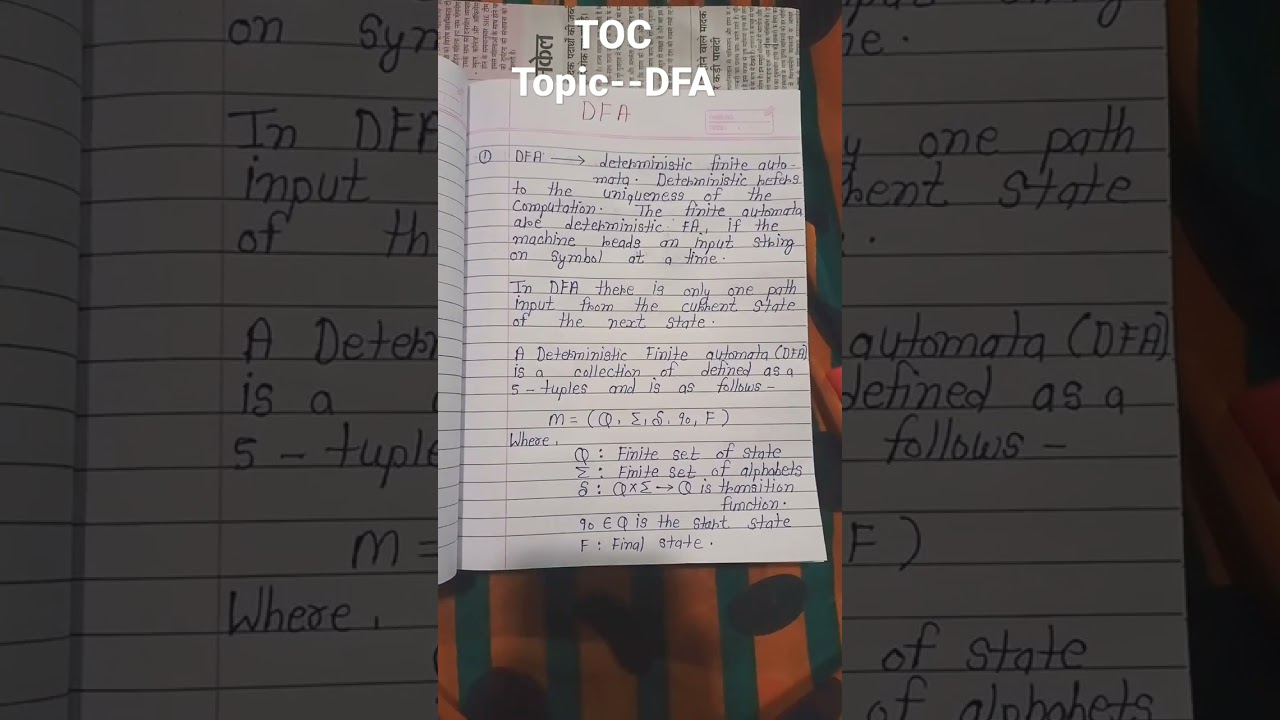 TOC
Topic--DFA
DFA
① DFA → deterministic finite auto-
mata. Deterministic refers
to the uniqueness of the
Computation. The finite automata
are deterministic FA, if the
machine reads an input string
on symbol at a time.
In DFA there is only one path
input from the current state
of the next state.
A Deterministic Finite automata (DFA)
is a collection of defined as a
5-tuples and is as follows-
M = (Q, Σ, δ, q0, F)
Where,
Q : Finite set of state
Σ : Finite set of alphabets
δ : Q×Σ → Q is transition
function.
q0 ∈ Q is the start state
F : Final state.